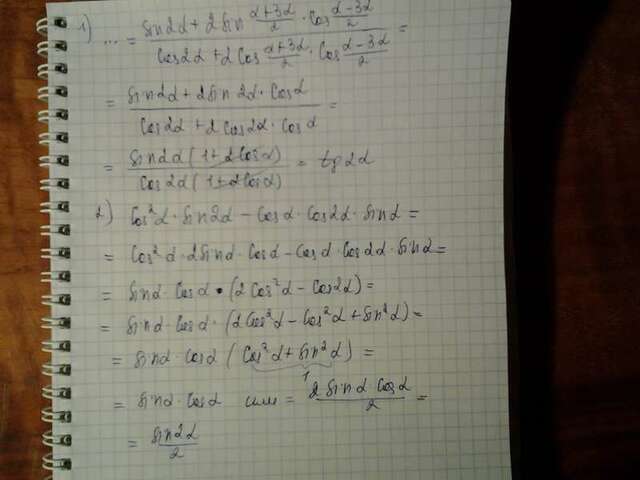 1) ... = (sin2α + 2sin (α+3α)/2 · cos (α-3α)/2) / (cos2α + 2cos (α+3α)/2 · cos (α-3α)/2) =
= (sin2α + 2sin2α · cosα) / (cos2α + 2cos2α · cosα) =
= (sin2α (1+2cosα)) / (cos2α (1+2cosα)) = tg2α
2) cos²α · sin2α - cosα · cos2α · sinα =
= cos²α · 2sinα · cosα - cosα · cos2α · sinα =
= sinα · cosα · (2cos²α - cos2α) =
= sinα · cosα · (2cos²α - cos²α + sin²α) =
= sinα · cosα (cos²α + sin²α) =
1
= sinα · cosα или = (2 sinα cosα) / 2 =
= sin2α / 2